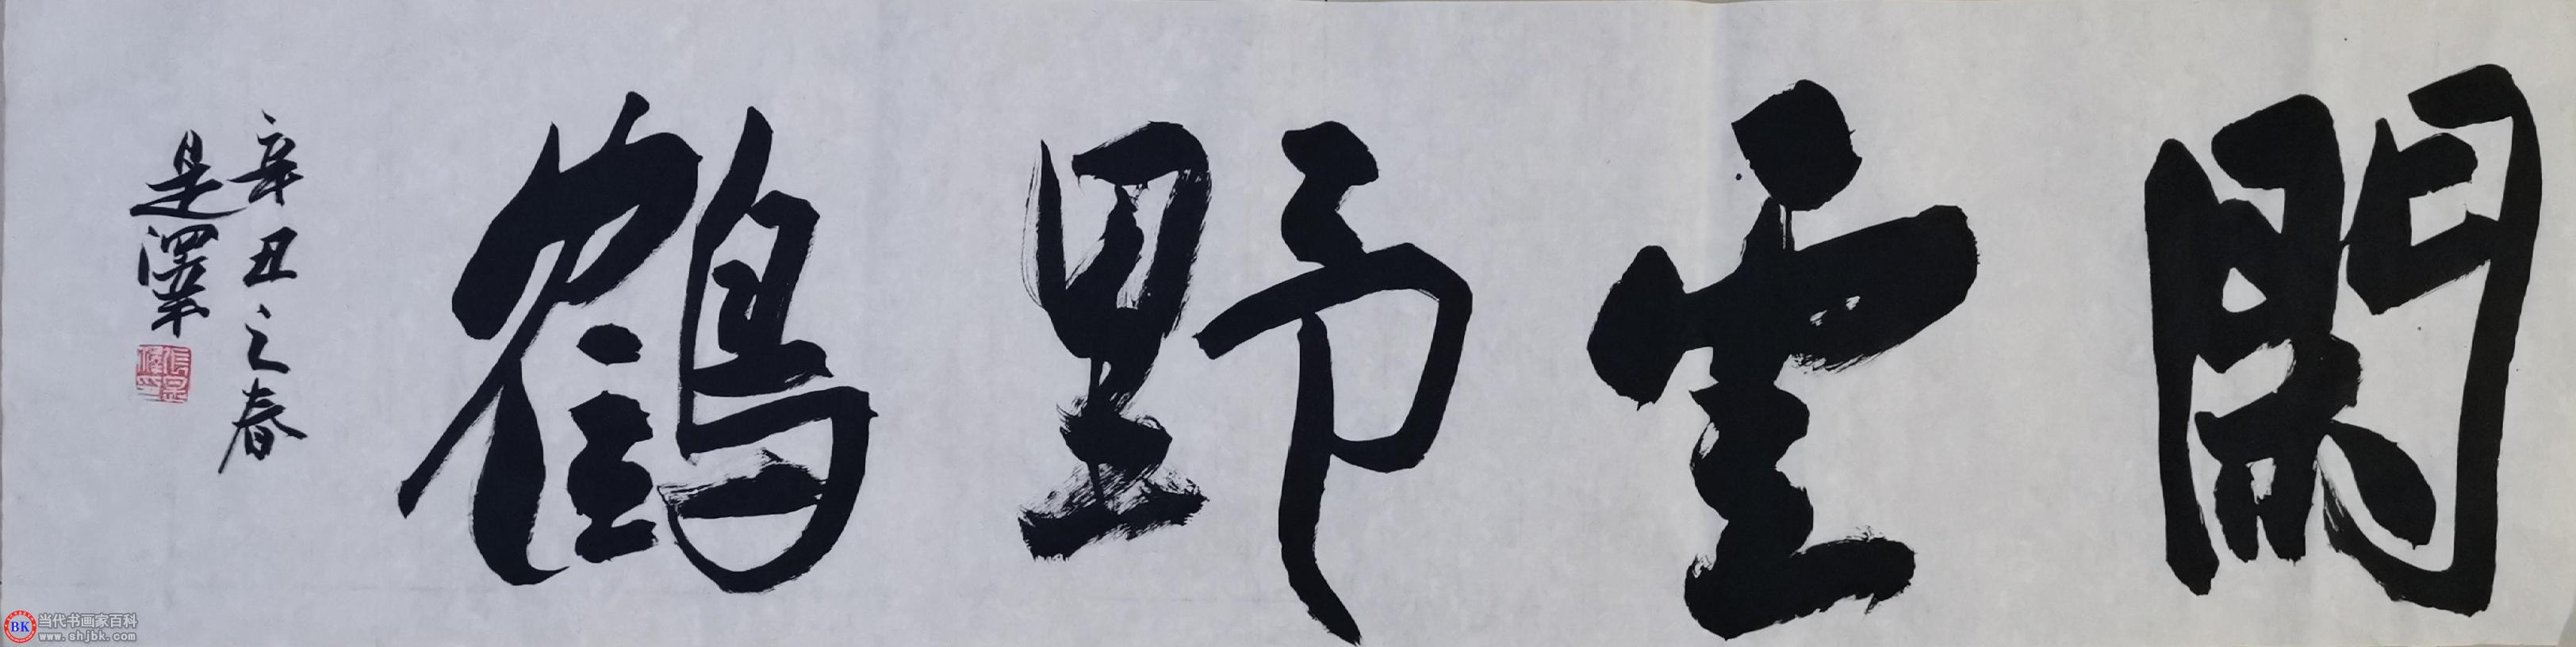 閑雲野鶴
辛丑之春
是澤
当代书画家百科
www.shjbk.com
BK